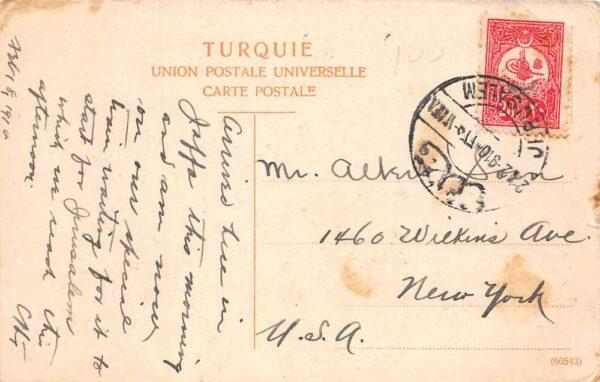 TURQUIE
UNION POSTALE UNIVERSELLE
CARTE POSTALE
100
Feb 1st 1910
Arrived here in
Jaffa this morning
and am now
on our special
train waiting for it to
start for Jerusalem
which we reach this
afternoon.
Mr.
1460 Wilkins Ave.
New York
U.S.A.
JERUSALEM
(60542)